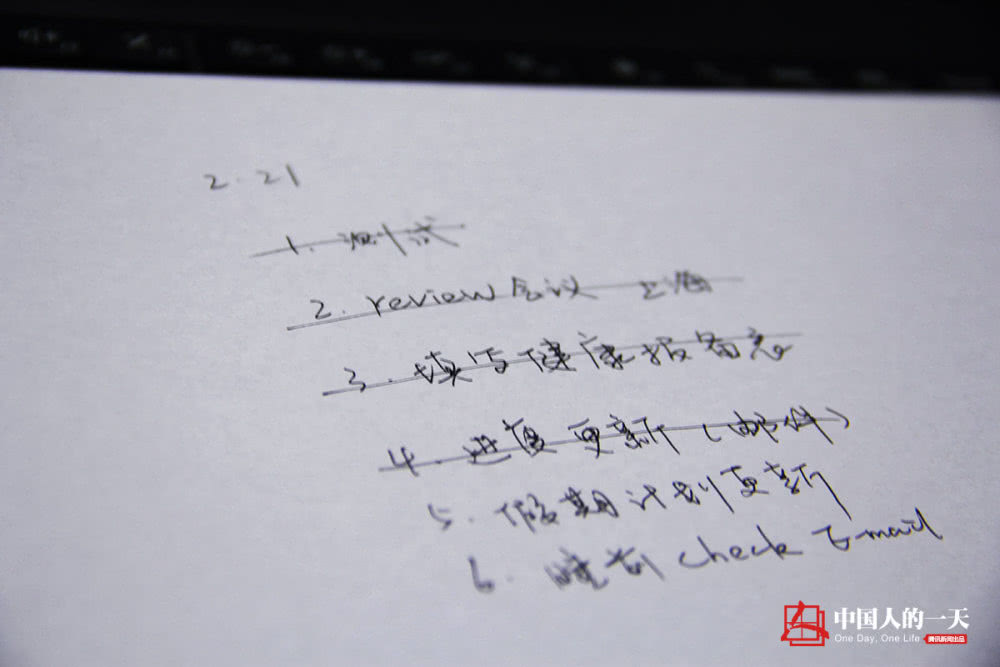 2.21
1. 测试
2. review会议 上海
3. 填写健康报备表
4. 进度更新(邮件)
5. 假期计划更新
6. check E-mail
中国人的一天
One Day, One Life 腾讯新闻出品